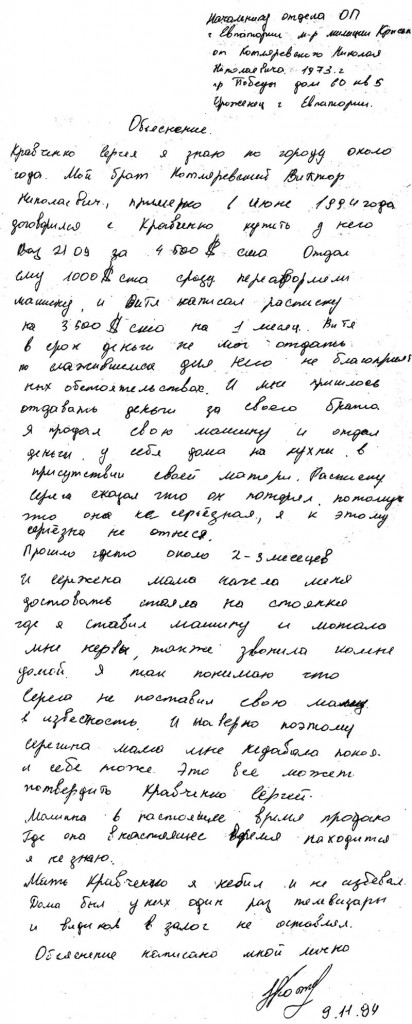 Начальнику отдела ОП
г Евпатории м-р милиции
от Котляревского Николая
Николаевича 1973 г
пр Победы дом 60 кв 5
Уроженец г Евпатории.
Объяснение.
Кравченко Сергея я знаю по городу около
года. Мой брат Котляревский Виктор
Николаевич, примерно в Июне 1994 года
договорился с Кравченко купить у него
Ваз 2109 за 4500$ сша Отдал
ему 1000$ сша сразу переаформели
машину, и Витя написал расписку
на 3500$ сша на 1 месец. Витя
в срок деньги не мог отдать
по сложившимся для него не благоприят
ных обстоятельствах. И мне пришлось
отдавать деньги за своего брата
Я продал свою машину и отдал
деньги у себя дома на кухни в
присутствии своей матери. Расписку
Серега сказал что он потерял, потому
что она не серьёзная, я к этому
серьёзна не отнёся.
Прошло гдето около 2-3 месецев
и сережена мама начела меня
достовать стаяла на стоянке
где я ставил машину и мотала
мне нервы, также звонила комне
домой. Я так понимаю что
Серега не поставил свою маму
в известность. И наверно поэтому
серегина мама мне недавала покоя
и себе тоже. Это все может
потвердить Кравченко Сергей.
Машина в настоящее время продано
Где она в настоящее время находится
я не знаю.
Мать Кравченко я небил и не избевал.
Дома был у них один раз телевизары
и видиков в залог не оставлял.
Обьяснение написано мной лично
9.11.94